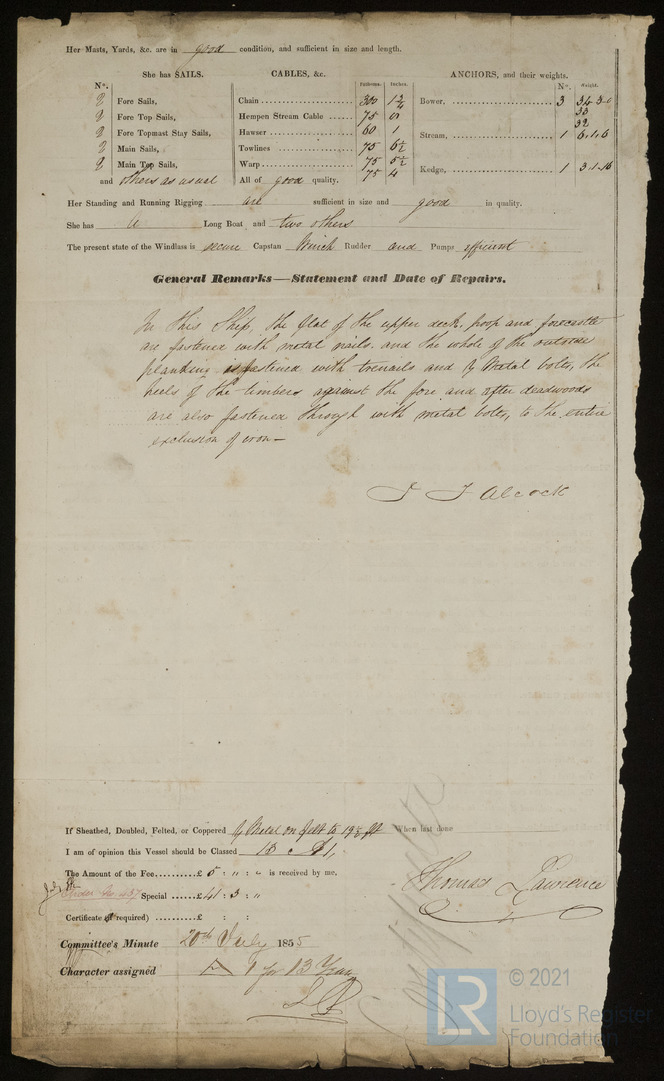 Her Masts, Yards, &c. are in good condition, and sufficient in size and length.
She has SAILS. CABLES, &c. ANCHORS, and their weights.
N°. Fathoms. Inches. N°. Weight.
2 Fore Sails, Chain 300 1 3/4 Bower, 3 34 3 0
2 Fore Top Sails, Hempen Stream Cable 75 9 33
32
2 Fore Topmast Stay Sails, Hawser 60 1 Stream, 1 6.1.6
2 Main Sails, Towlines 75 6½
2 Main Top Sails, Warp 75 5½ Kedge, 1 3.1.16
and others as usual All of good quality. 75 4
Her Standing and Running Rigging are sufficient in size and good in quality.
She has a Long Boat and two others
The present state of the Windlass is secure Capstan Winch Rudder and Pumps efficient
General Remarks—Statement and Date of Repairs.
In this Ship, the flat of the upper deck, poop and forecastle
are fastened with metal nails. and the whole of the outside
planking is fastened with trenails and Y Metal bolts, the
heels of the timbers against the fore and after deadwoods
are also fastened through with metal bolts, to the entire
exclusion of iron—
J J Alcock
If Sheathed, Doubled, Felted, or Coppered Y Metal on felt to 19½ ft When last done
I am of opinion this Vessel should be Classed 13 A1,
The Amount of the Fee £ 5 : " : " is received by me,
Special £ 41 : 3 : "
Thomas Lawrence
Certificate (if required) £ : :
Committee's Minute 20th July 1855
Character assigned A 1 for 13 Years
Certificate
LR
© 2021
Lloyd's Register
Foundation